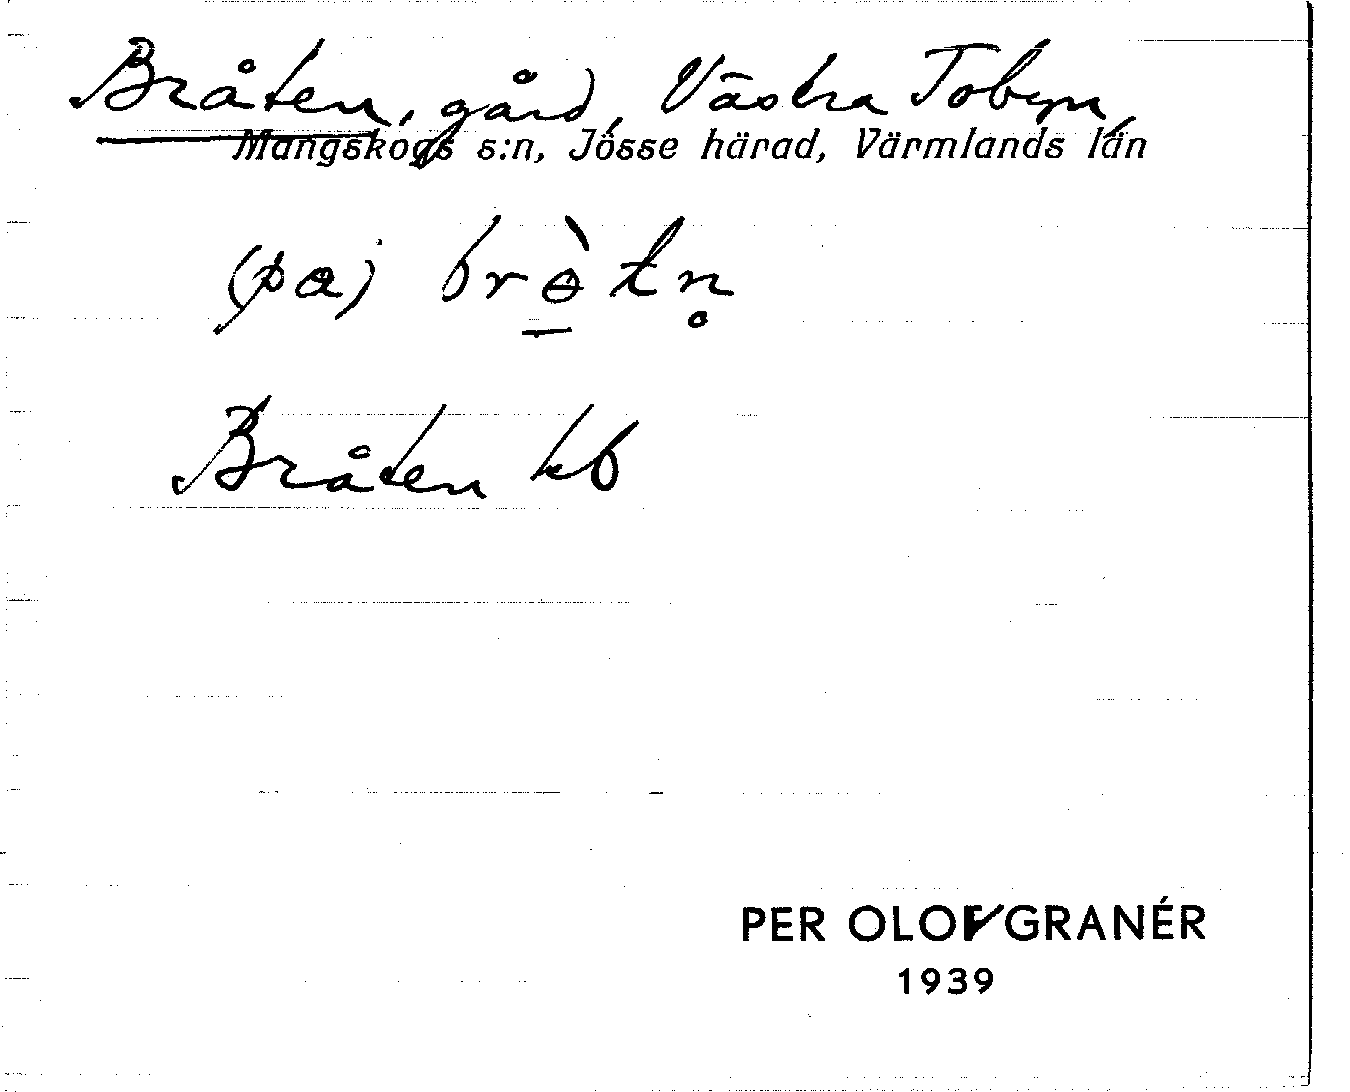 Bråten, gård, Västra Tobyn,
Mangskogs s:n, Jösse härad, Värmlands län
(pɑ) brɵ̀tn̥
Bråten kb
PER OLOF GRANÉR
1939